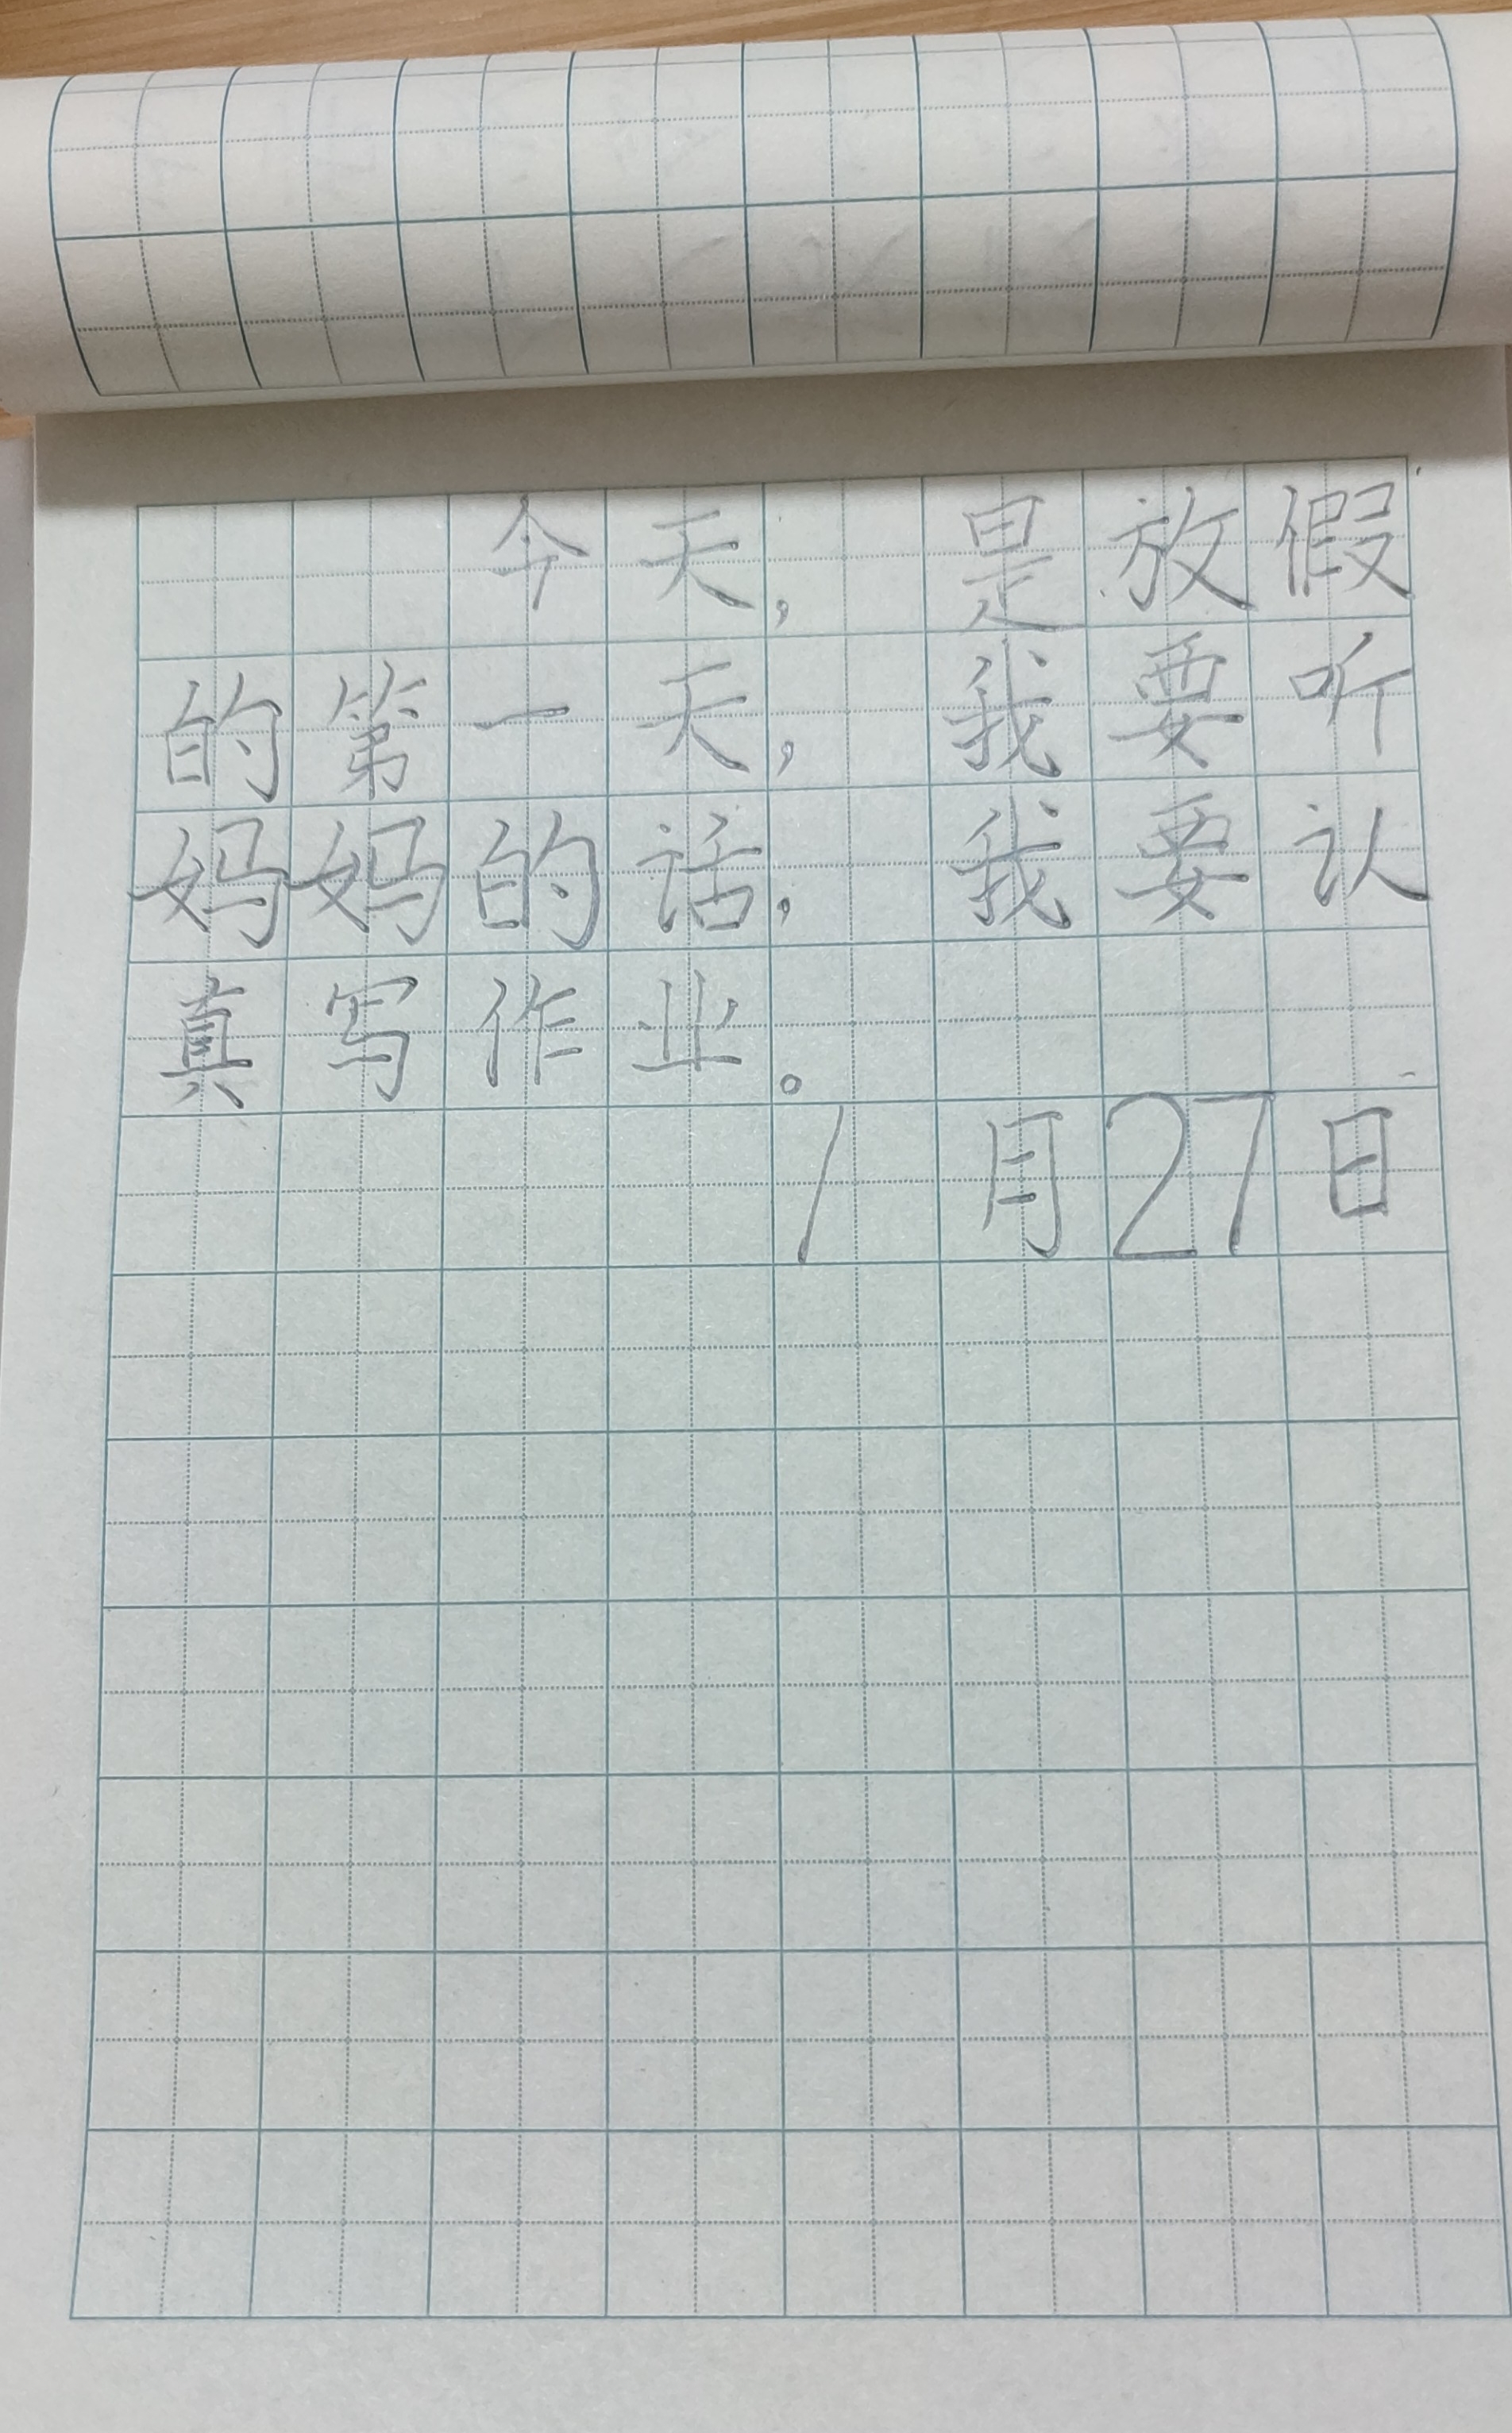 今天，是放假
的第一天，我要听
妈妈的话，我要认
真写作业。
1月27日